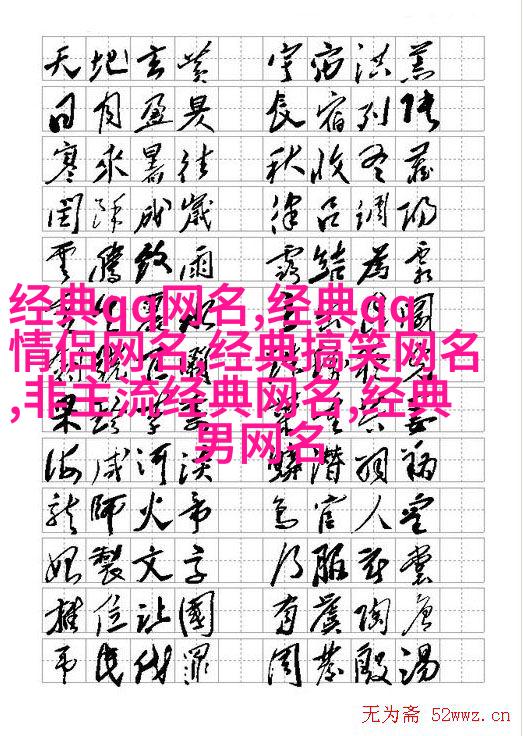 天地玄黄 宇宙洪荒
日月盈昃 辰宿列張
寒來暑往 秋收冬藏
閏餘成歲 律呂調陽
雲騰致雨 露結為霜
经典qq网名,经典qq
情侣网名,经典搞笑网名
,非主流经典网名,经典
男网名
海咸河淡 鱗潛羽翔
龍師火帝 鳥官人皇
始製文字 乃服衣裳
推位让國 有虞陶唐
弔民伐罪 周發殷湯
无为斋 52wwz.cn